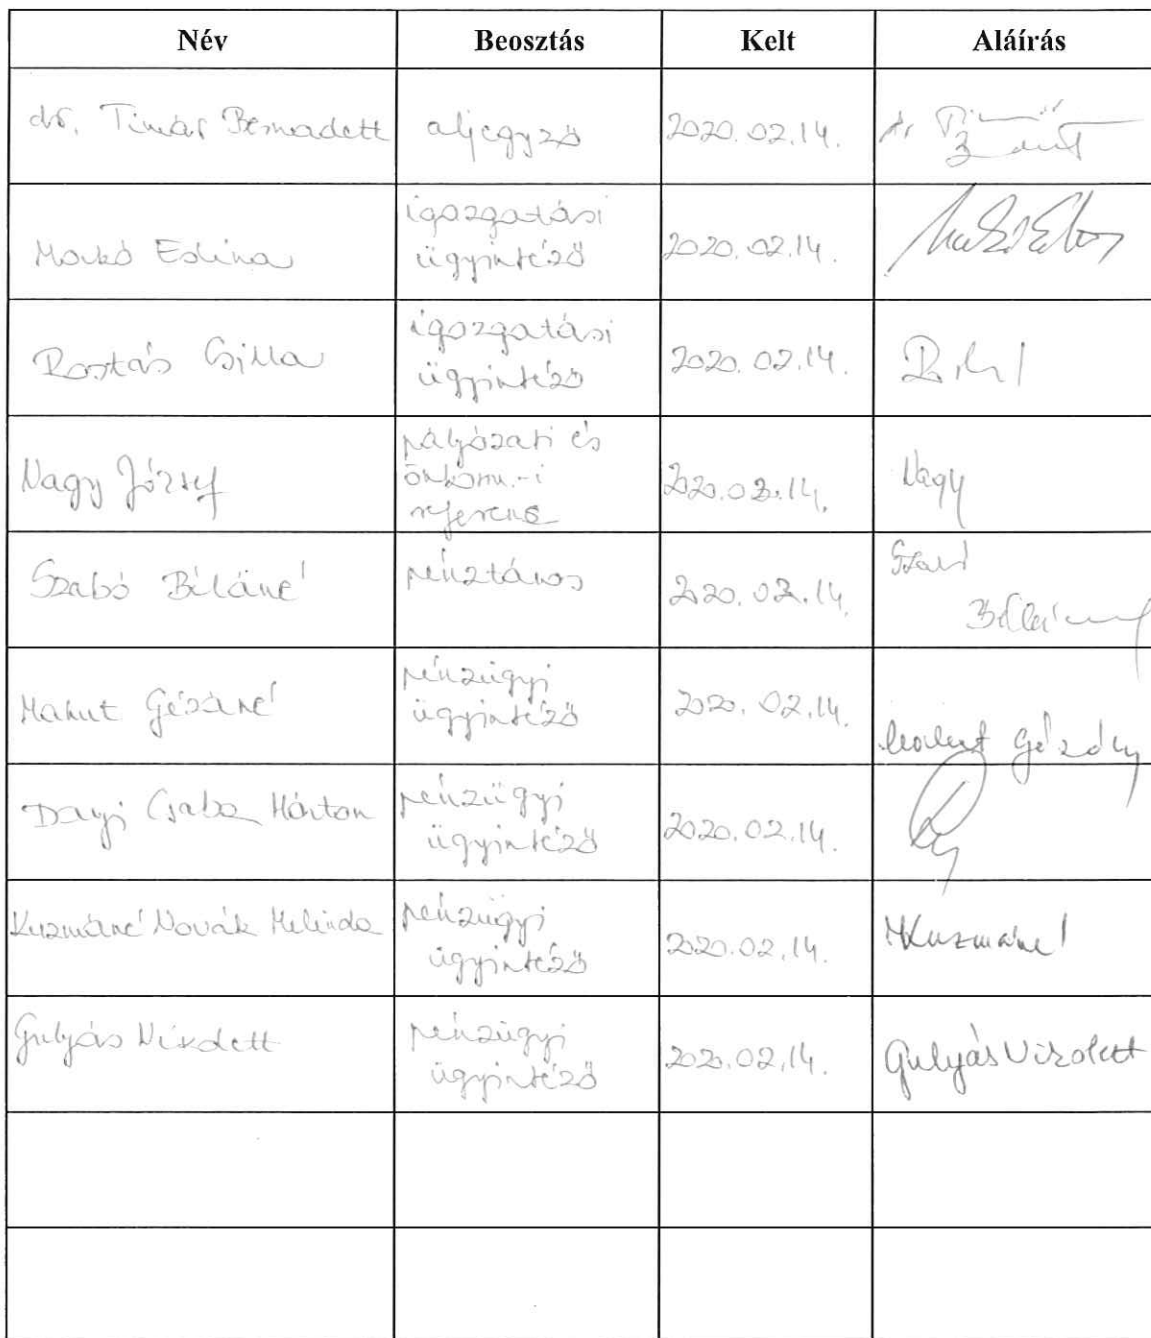 Név Beosztás Kelt Aláírás
dr. Timár Bernadett aljegyző 2020.02.14.
Markó Edina igazgatási ügyintéző 2020.02.14.
Rostás Csilla igazgatási ügyintéző 2020.02.14.
Nagy József pályázati és önkorm.-i referens 2020.02.14. Nagy
Szabó Béláné pénztáros 2020.02.14. Szabó Béláné
Géza​né pénzügyi ügyintéző 2020.02.14.
Csaba Márton pénzügyi ügyintéző 2020.02.14.
Kuzmáné Novák Melinda pénzügyi ügyintéző 2020.02.14. Kuzmáné
Gulyás Vizolett pénzügyi ügyintéző 2020.02.14. Gulyás Vizolett